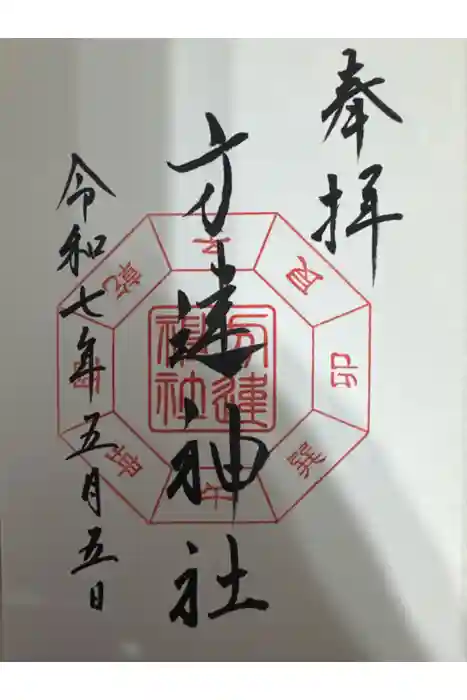 奉拝
方違神社
令和七年五月五日
方違
神社
子
艮
卯
巽
午
坤
酉
乾